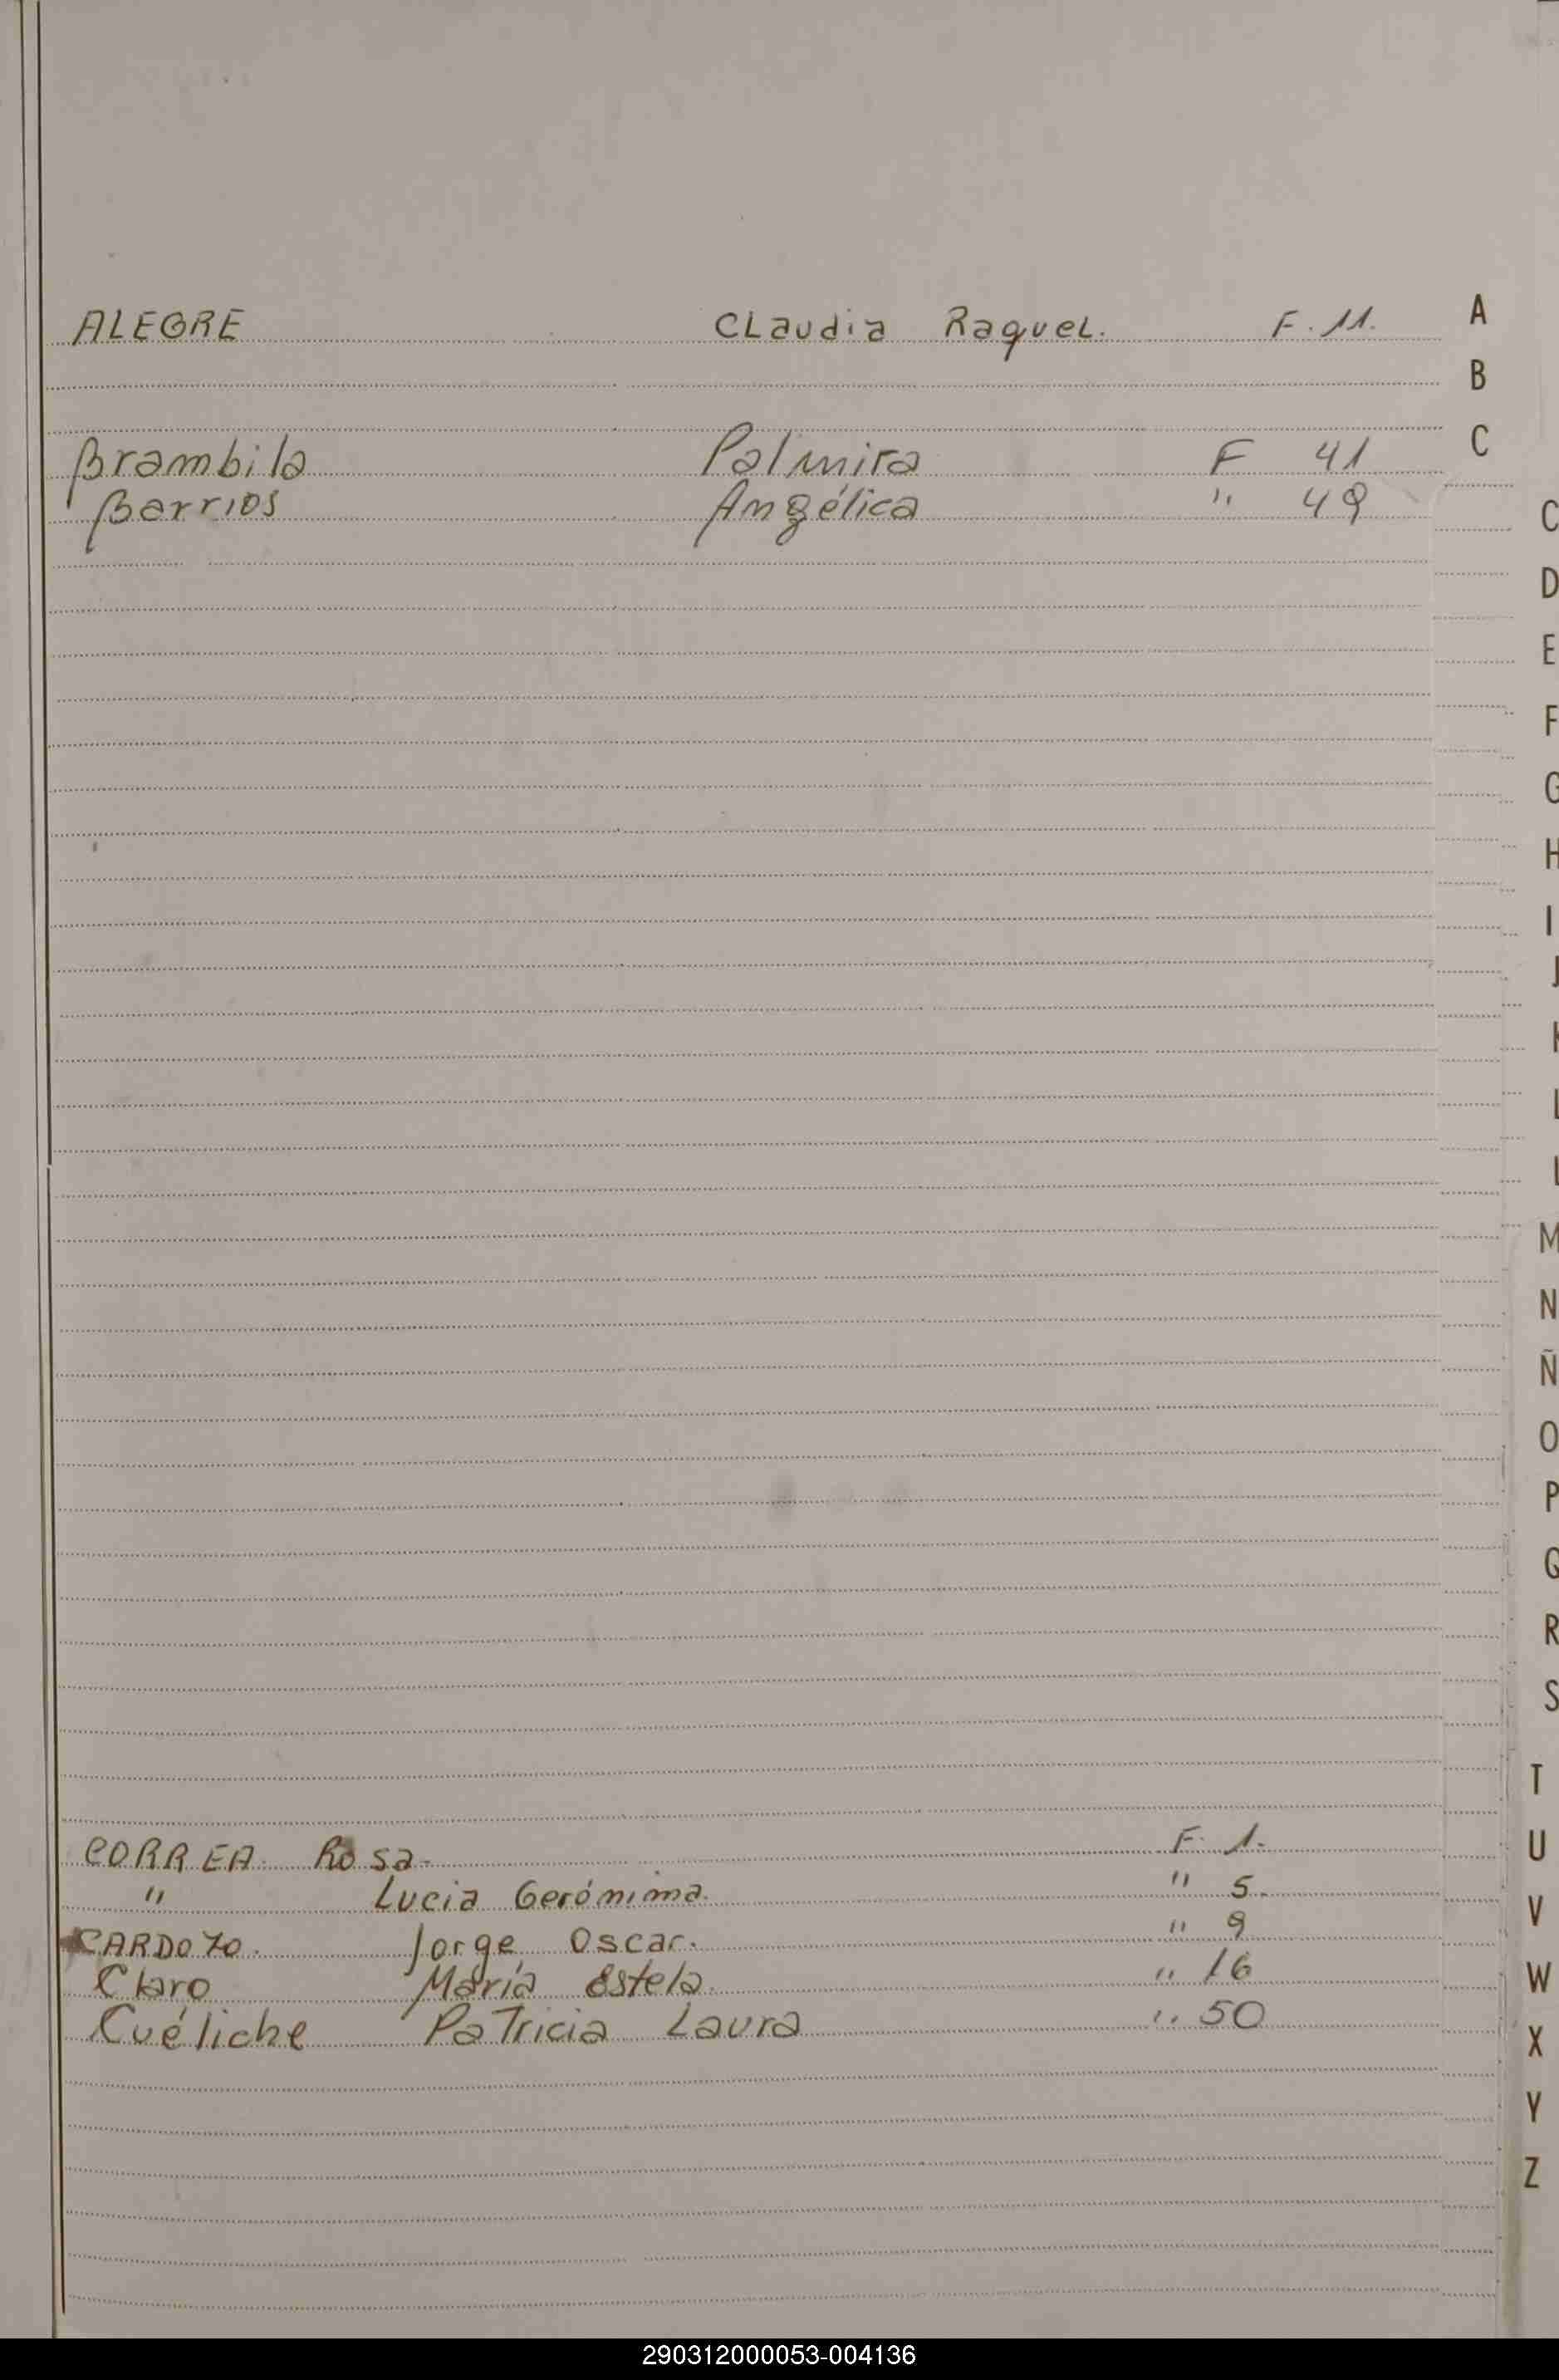 ALEGRE Claudia Raquel. F. 11.
Brambila Palmira F 41
Barrios Angélica " 49
CORREA Rosa F. 1.
" Lucia Gerónima. " 5.
CARDOZO. Jorge Oscar. " 9
Claro María Estela. " 16
Cuéliche Patricia Laura " 50
A
B
C
C
D
E
F
G
H
I
J
K
L
L
M
N
Ñ
O
P
Q
R
S
T
U
V
W
X
Y
Z
290312000053-004136